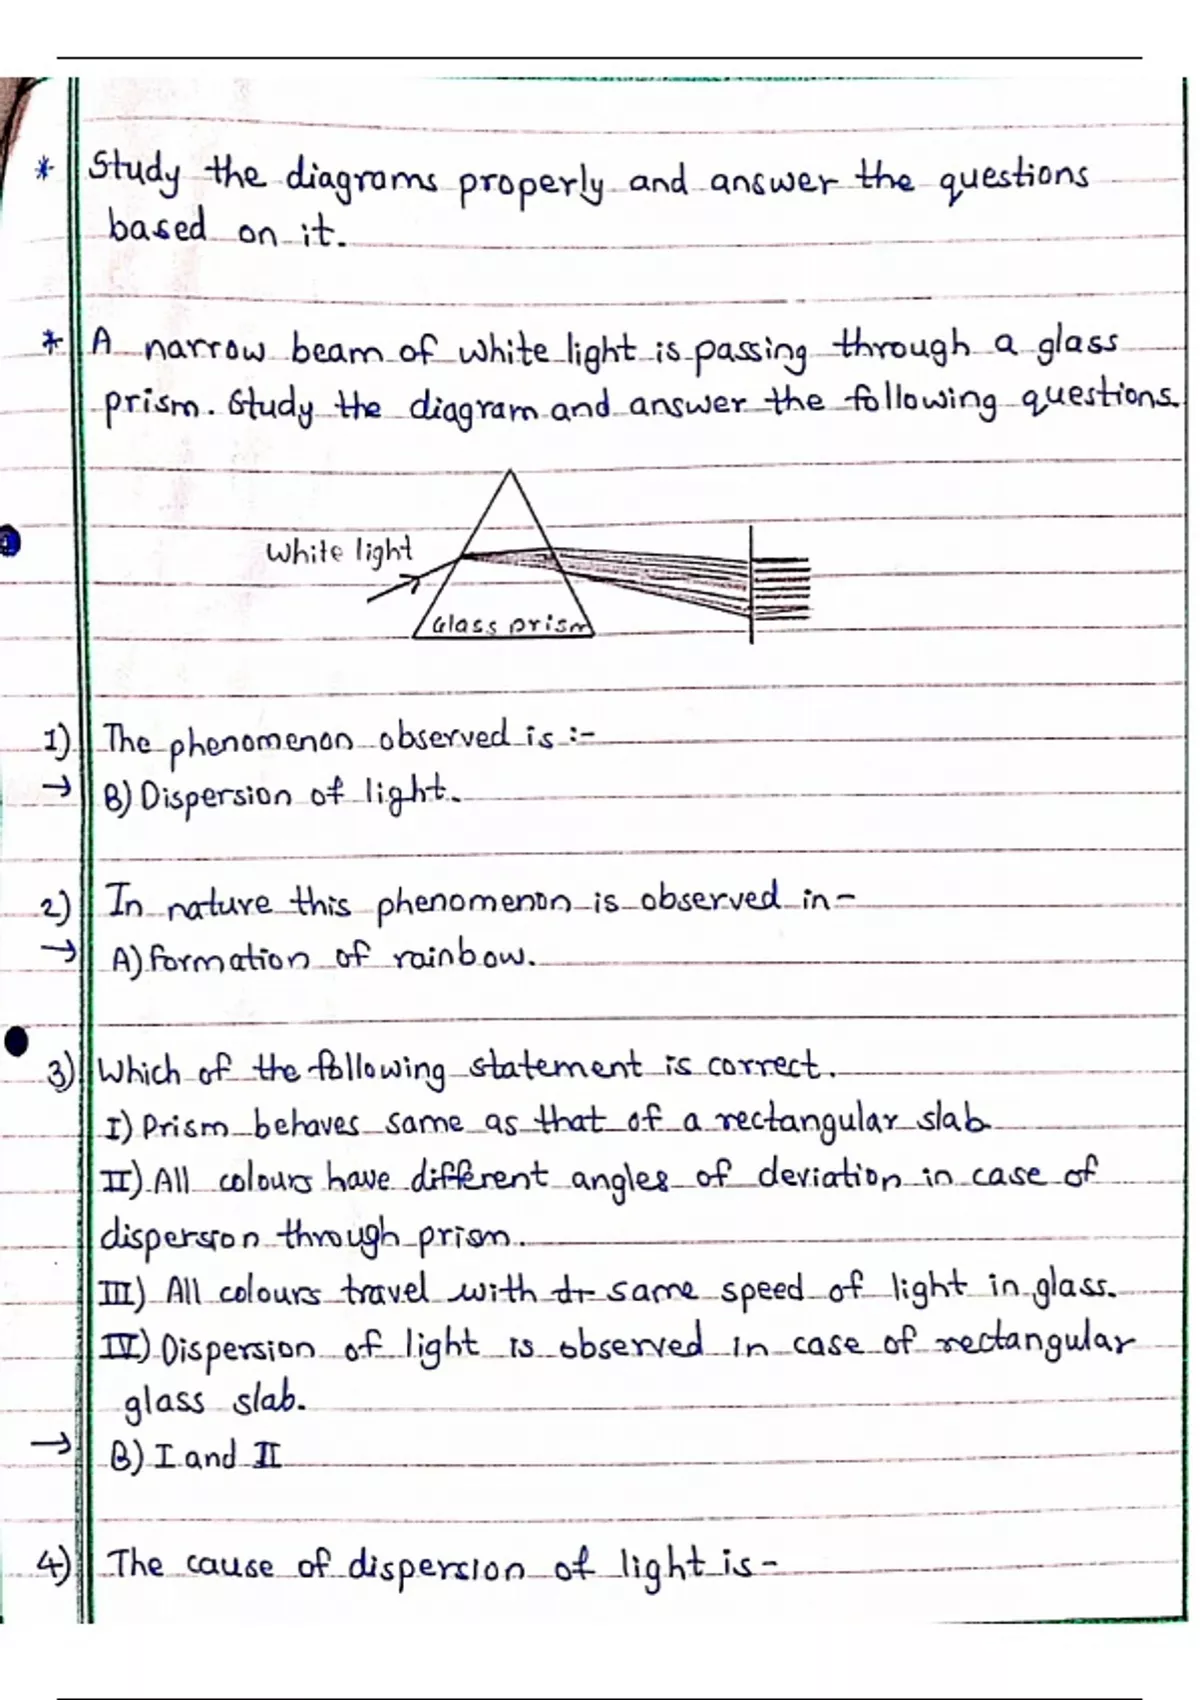 * Study the diagrams properly and answer the questions
based on it.
* A narrow beam of white light is passing through a glass
prism. Study the diagram and answer the following questions.
White light
Glass prism
1) The phenomenon observed is :-
→ B) Dispersion of light.
2) In nature this phenomenon is observed in-
→ A) formation of rainbow.
3) Which of the following statement is correct.
I) Prism behaves same as that of a rectangular slab
II) All colours have different angles of deviation in case of
dispersion through prism.
III) All colours travel with same speed of light in glass.
IV) Dispersion of light is observed in case of rectangular
glass slab.
→ B) I and II
4) The cause of dispersion of light is-